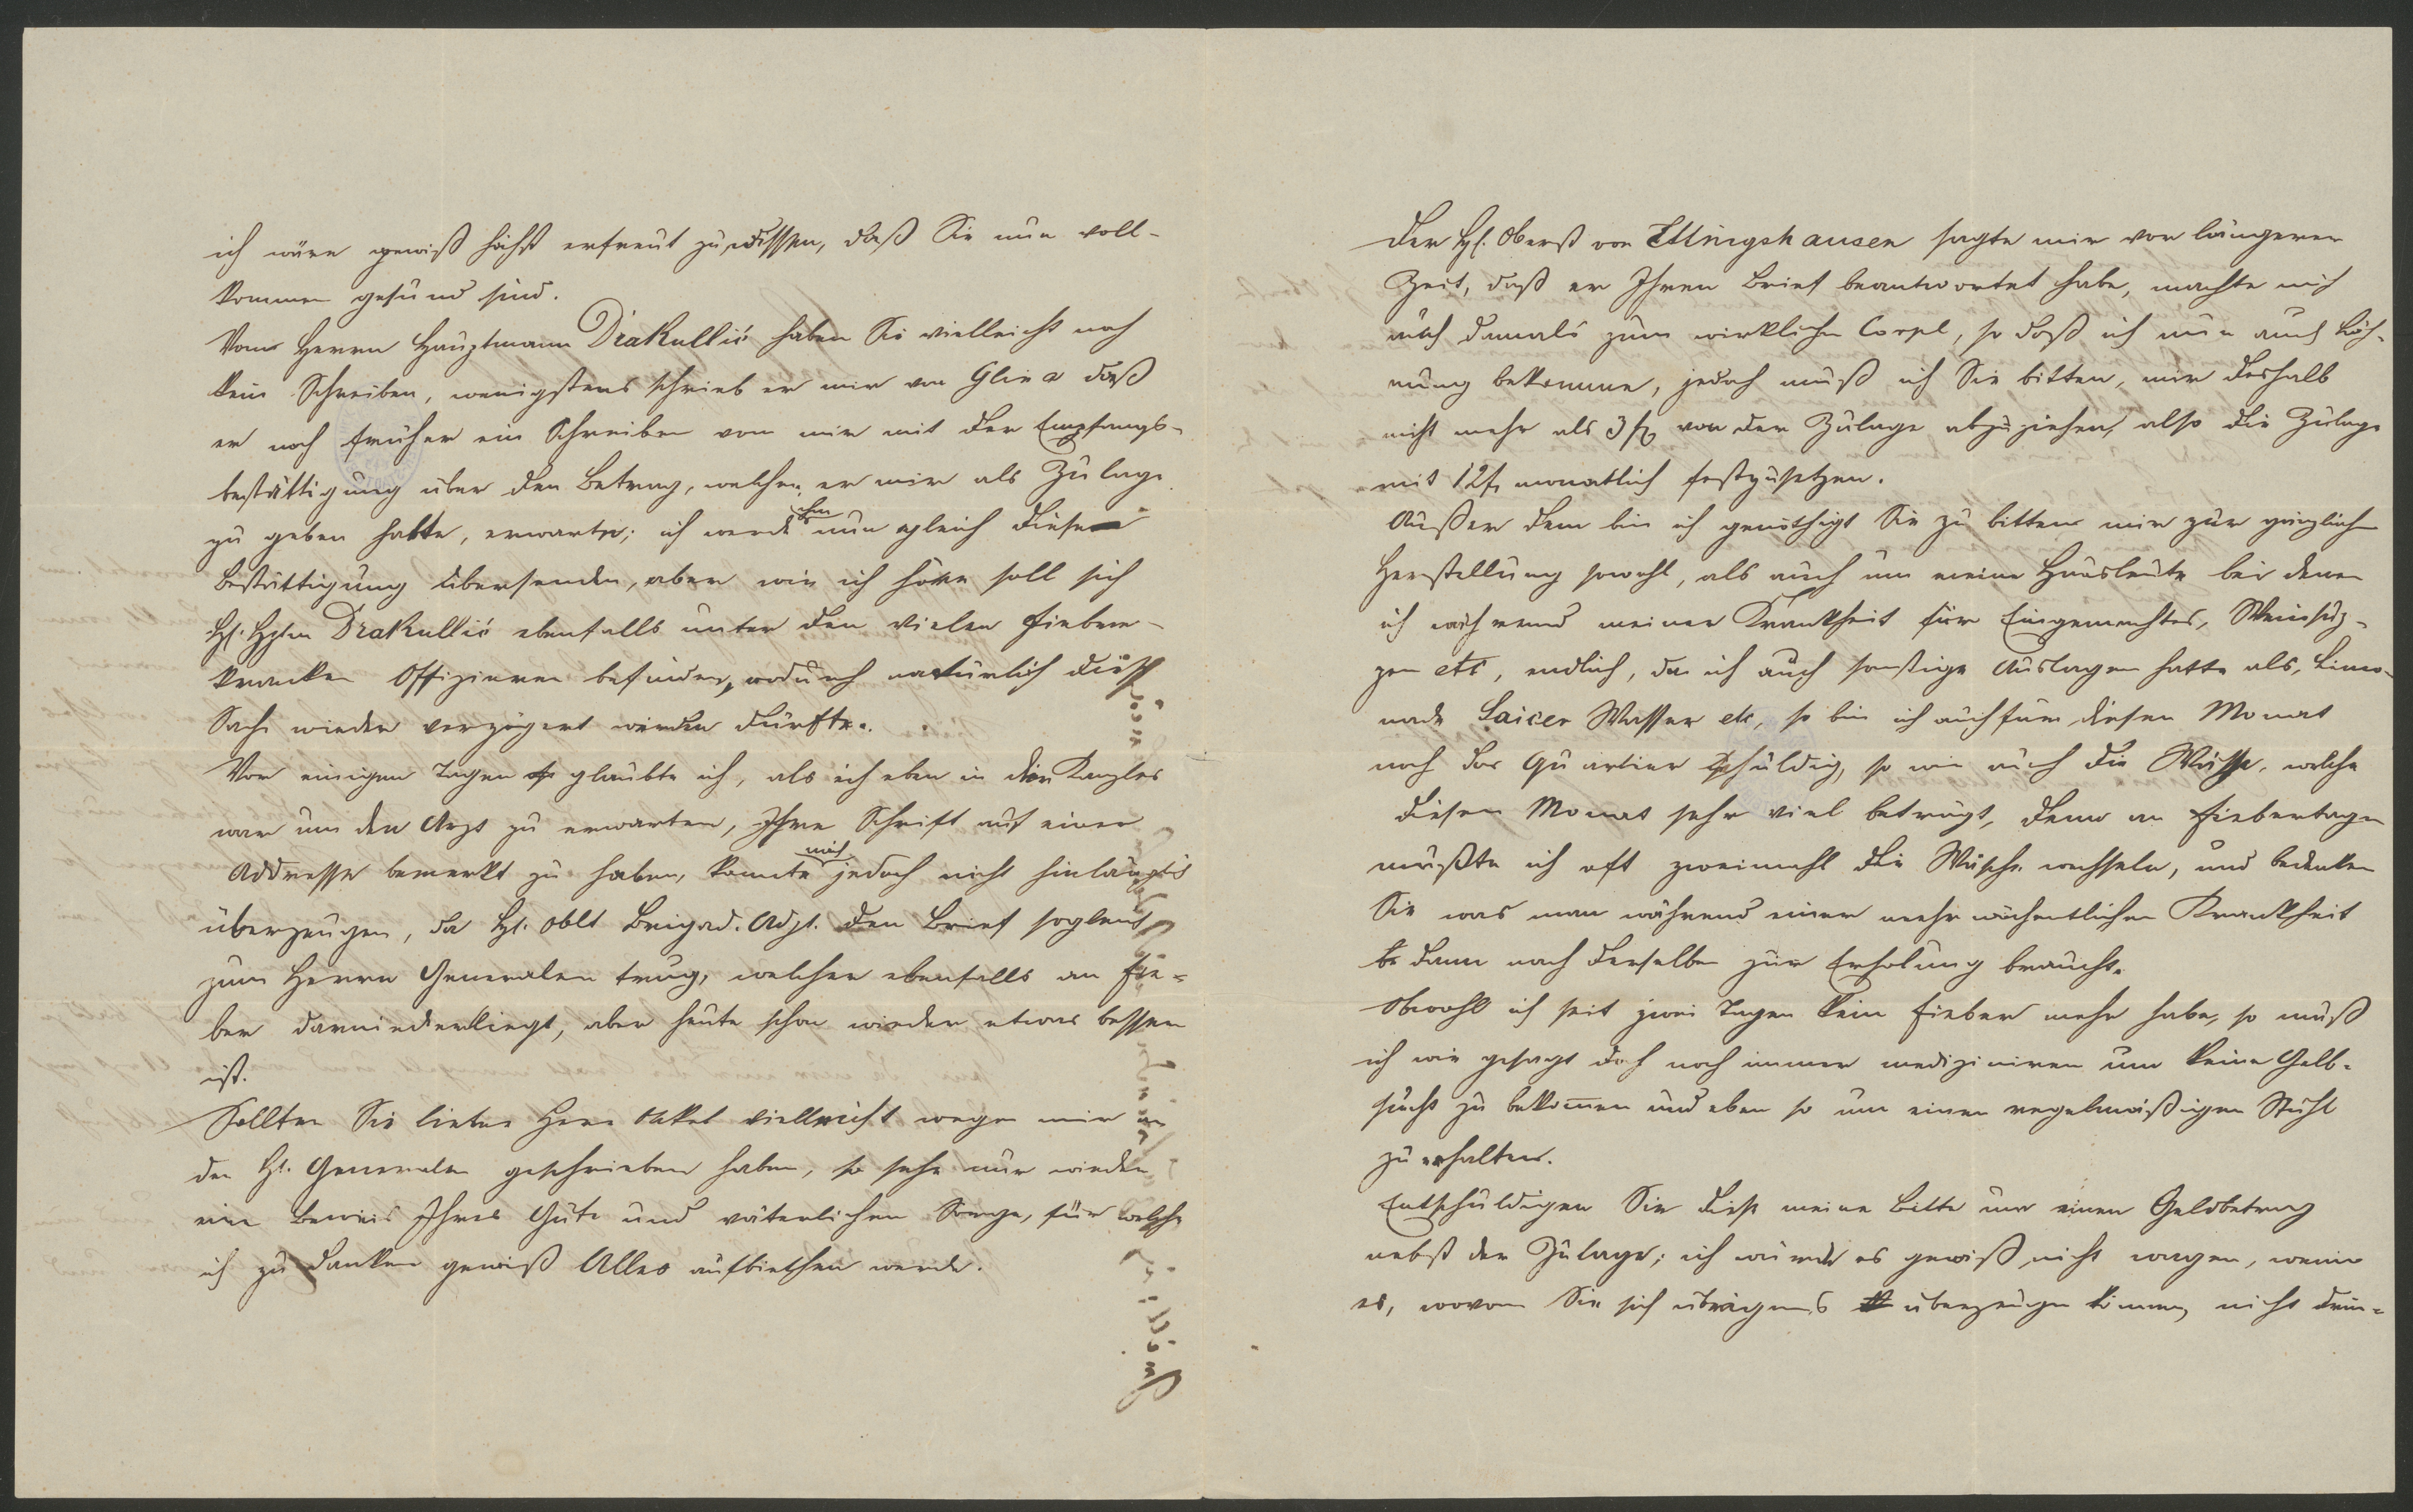 ich wäre gewiß höchst erfreut zu wissen, daß Sie nun voll-
kommen gesund sind.
Vom Herrn Hauptmann Drakullić haben Sie vielleicht noch
kein Schreiben, wenigstens schrieb er mir von Glina daß
er noch früher ein Schreiben von mir mit der Empfangs-
bestättigung über den Betrag, welchen er mir als Zulage
zu geben hatte, erwarte; ich werde ihm nun gleich diese
Bestättigung übersenden, aber wie ich höre soll sich
H. Hptm Drakullić ebenfalls unter den vielen fieber-
kranken Offizieren befinden, wodurch natürlich diese
Sache wieder verzögert werden dürfte.
Vor einigen Tagen glaubte ich, als ich eben in der Kanzlei
war um den Arzt zu erwarten, Ihre Schrift auf einer
Addresse bemerkt zu haben, konnte mich jedoch nicht hinlänglich
überzeugen, da H. Oblt Brigad. Adjt. den Brief sogleich
zum Herrn Generalen trug, welcher ebenfalls an Fie-
ber darniederliegt, aber heute schon wieder etwas besser
ist.
Sollten Sie lieber Herr Onkel vielleicht wegen mir an
den H. Generalen geschrieben haben, so sehe nur wieder
ein Beweis Ihrer Güte und väterlichen Sorge, für welche
ich zu danken gewiß Alles aufbiethen werde.
Der H. Oberst von Ettingshausen sagte mir vor längerer
Zeit, daß er Ihren Brief beantwortet habe, machte mich
auch damals zum wirklichen Corpl, so daß ich nun auch Löh-
nung bekomme, jedoch muß ich Sie bitten, mir deshalb
nicht mehr als 3 f von der Zulage abzuziehen, also die Zulage
mit 12 f. monatlich festzusetzen.
Außer dem bin ich genöthigt Sie zu bitten mir zur gänzlichen
Herstellung sowohl, als auch um meine Hausleute bei denen
ich während meiner Krankheit für Eingemachtes, Weinsup-
pen etc, endlich, da ich auch sonstige Auslagen hatte als, Limo-
nade Saicer Wasser etc, so bin ich auch für diesen Monat
noch das Quartier schuldig, so wie auch die Wäsche, welche
diesen Monat sehr viel beträgt, denn an Fiebertagen
mußte ich oft zweimahl die Wäsche wechseln, und bedenken
Sie was man während einer mehrwöchentlichen Krankheit
dann nach derselben zur Erholung braucht.
Obwohl ich seit zwei Tagen kein Fieber mehr habe, so muß
ich wie gesagt doch noch immer mediziniren um keine Gelb-
sucht zu bekommen und eben so um einen regelmäßigen Stuhl
zu erhalten.
Entschuldigen Sie diese meine Bitte um einen Geldbetrag
nebst der Zulage; ich würde es gewiß nicht wagen, wenn
es, wovon Sie sich übrigens überzeugen können, nicht drin-